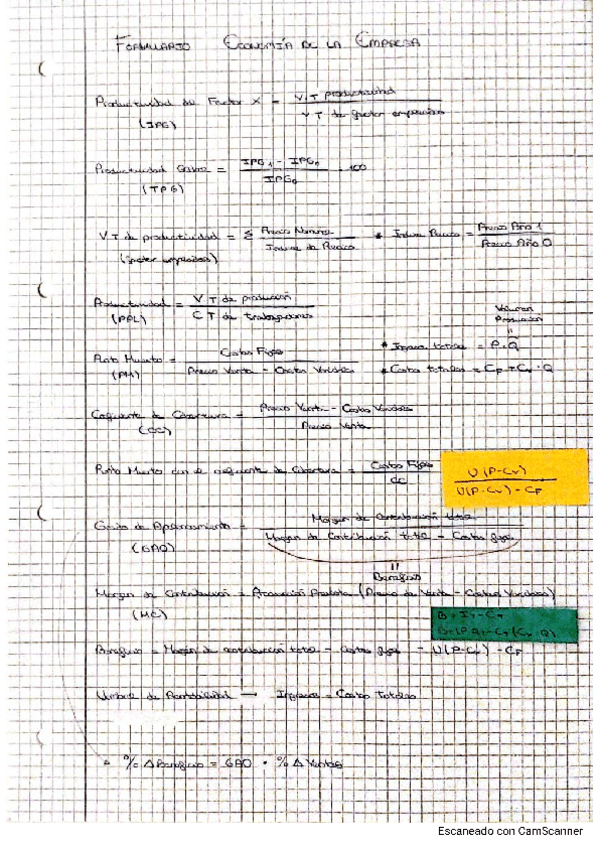 FORMULARIO ECONOMÍA DE LA EMPRESA
Productividad del Factor X = V.T productividad / V T de factor empresarial
(IPG)
Productividad Global = IPG₁ - IPG₀ / IPG₀ · 100
(TPG)
V T de productividad = Σ Precio Nominal / Índice de Precio * Índice Precio = Precio Año 1 / Precio Año 0
(factor empresarial)
Productividad = V T de producción / C T de trabajadores
(PPL)
Volumen Producción
Punto Muerto = Costes Fijos / Precio Venta - Costes Variables
(PM)
* Ingresos totales = P · Q
* Costes totales = CF + Cv · Q
Coeficiente de Cobertura = Precio Venta - Costes Variables / Precio Venta
(CC)
Punto Muerto con el coeficiente de Cobertura = Costes Fijos / CC
U(P-Cv) / U(P-Cv) - CF
Grado de Apalancamiento = Margen de Contribución total / Margen de Contribución total - Costes fijos
(GAO)
Beneficio
Margen de Contribución = (Precio de Venta - Costes Variables)
(MC)
Beneficio = Margen de contribución total - Costes fijos = U(P-Cv) - CF
Umbral de Rentabilidad → Ingresos = Costes Totales
% Δ Beneficio = GAO · % Δ Ventas
Escaneado con CamScanner